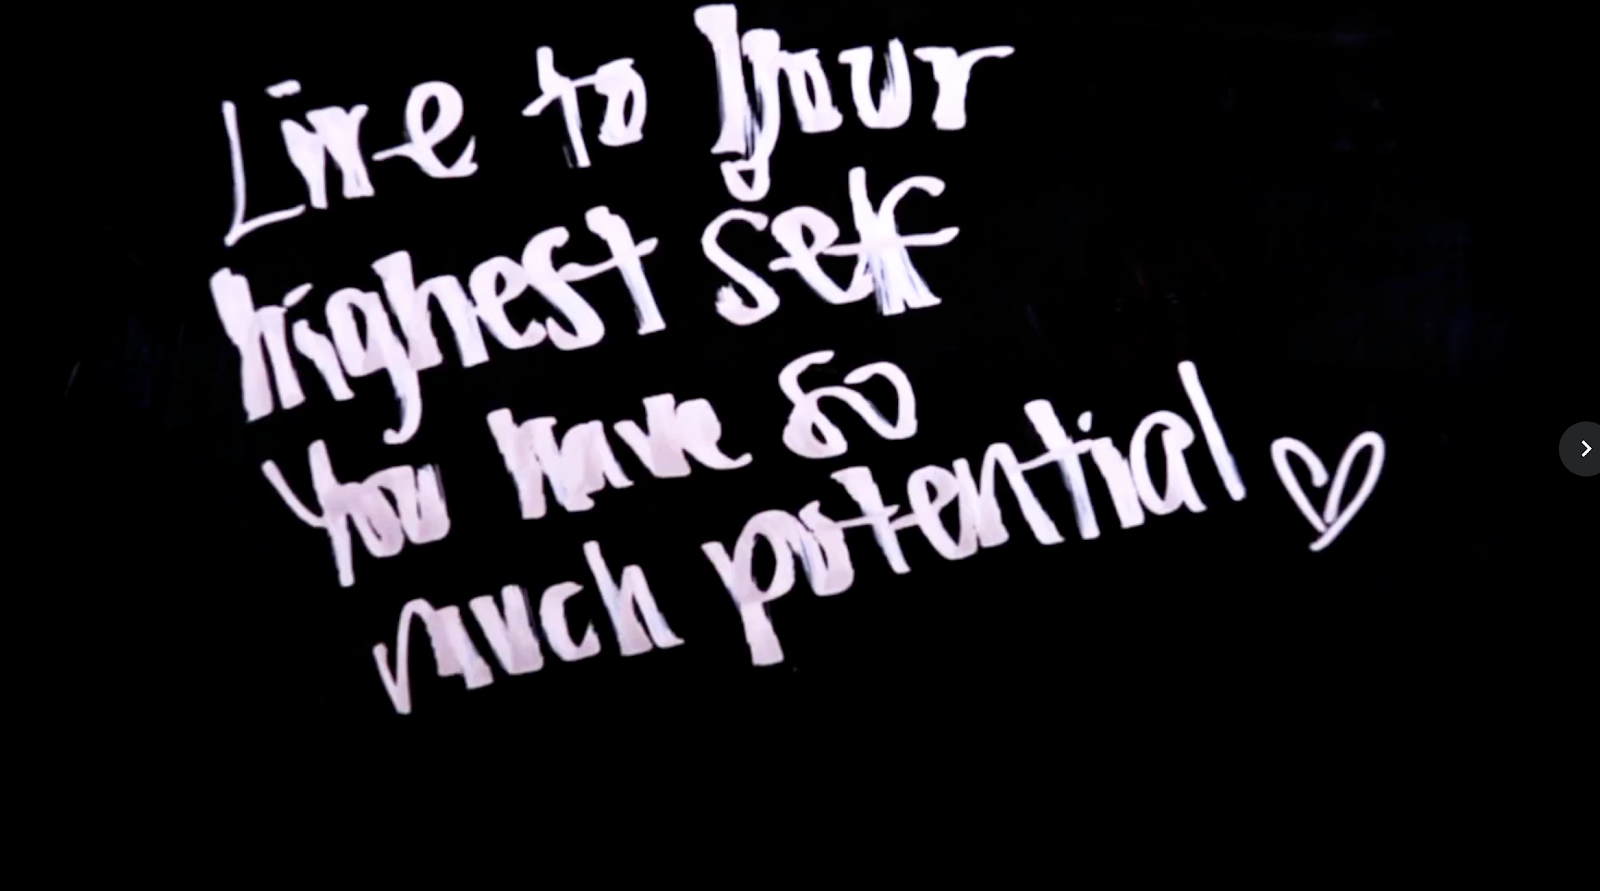 Live to your
highest self
You have so
much potential ♡